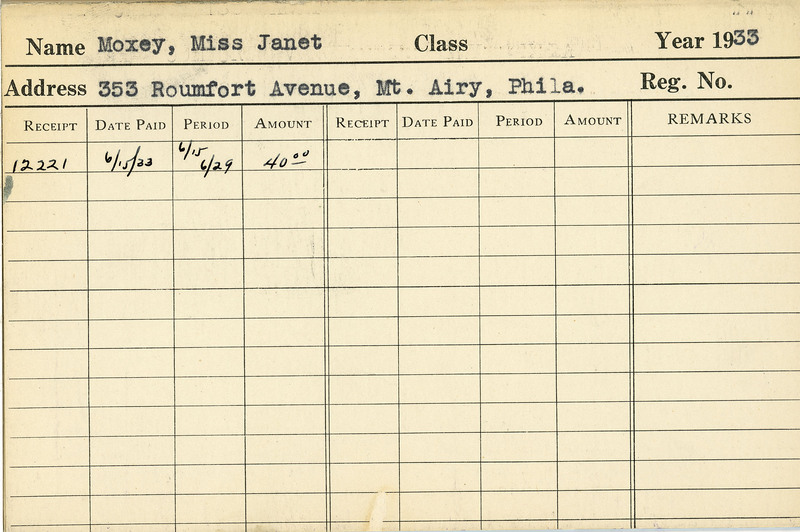 Name Moxey, Miss Janet Class Year 1933
Address 353 Roumfort Avenue, Mt. Airy, Phila. Reg. No.
RECEIPT DATE PAID PERIOD AMOUNT RECEIPT DATE PAID PERIOD AMOUNT REMARKS
12221 6/15/33 6/15 6/29 40 00